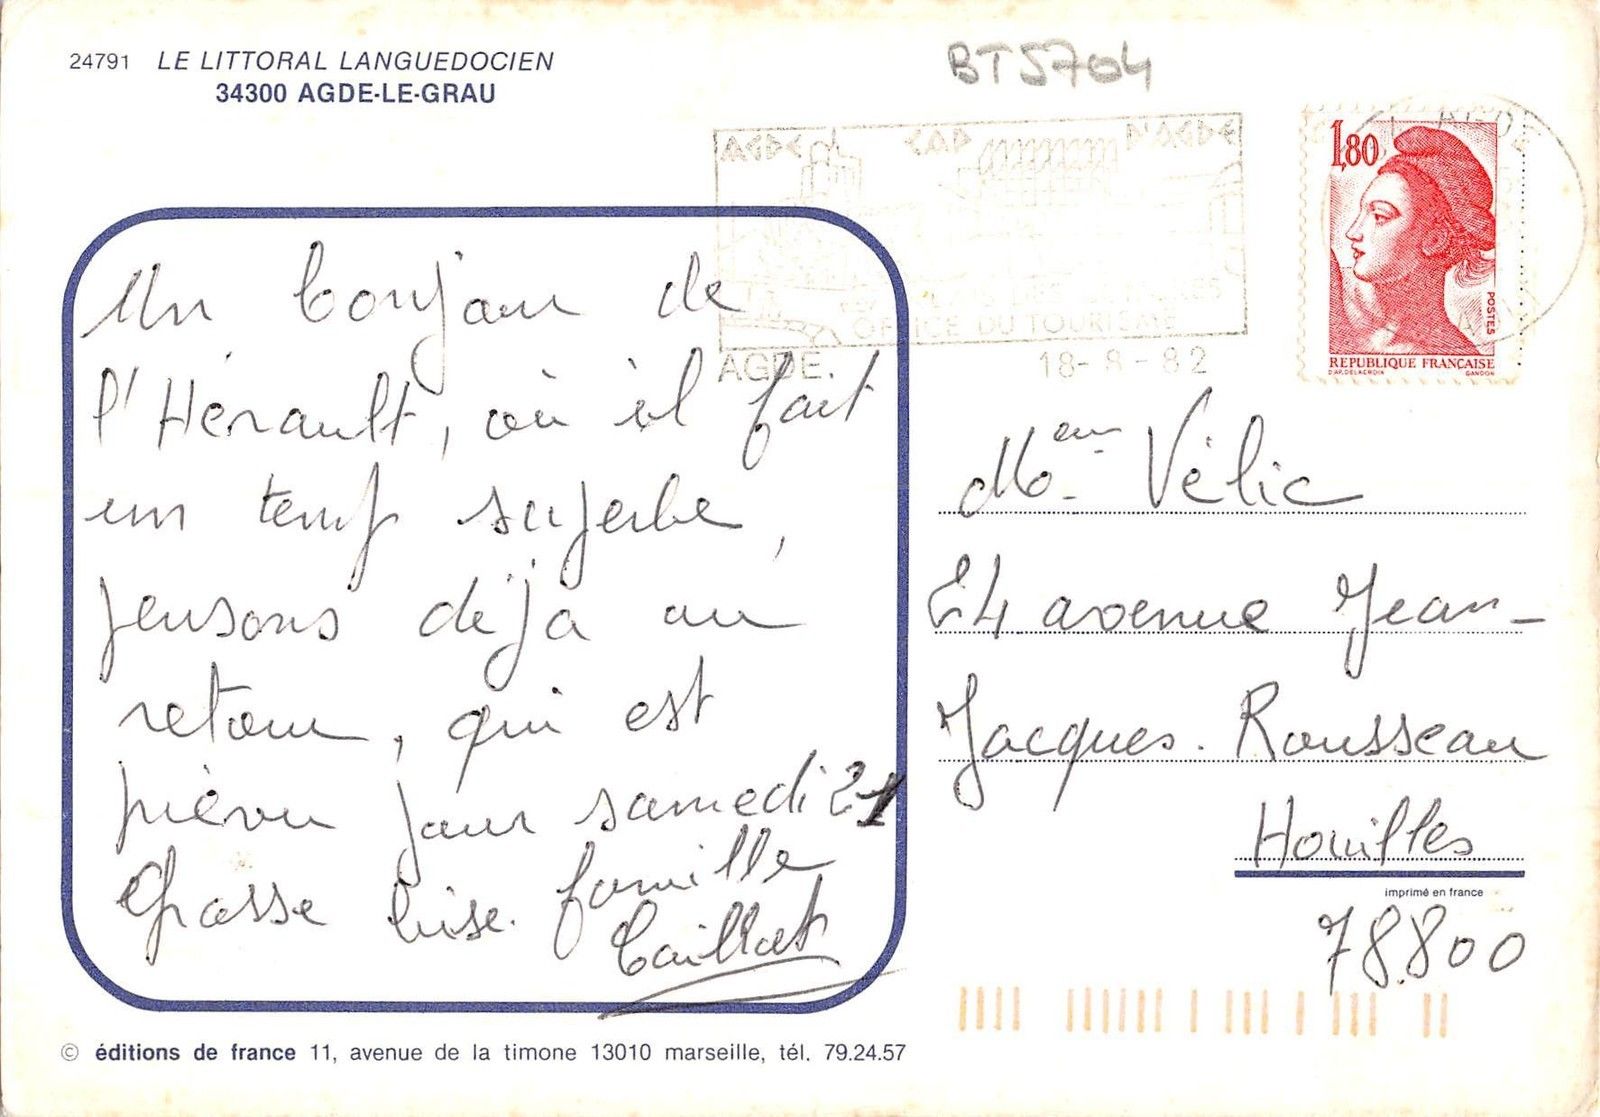 24791 LE LITTORAL LANGUEDOCIEN
34300 AGDE-LE-GRAU
BT5704
AGDE CAP D'AGDE
OFFICE DU TOURISME
AGDE. 18-8-82
1,80
POSTES
REPUBLIQUE FRANÇAISE
D'AP. DELACROIX GANDON
Un bonjour de
l'Hérault, où il fait
un temps superbe,
pensons déjà au
retour, qui est
prévu pour samedi 21
Grosse bise. famille
Caillat
Mme Vélic
24 avenue Jean-
Jacques. Rousseau
Houilles
imprimé en france
78.800
© éditions de france 11, avenue de la timone 13010 marseille, tél. 79.24.57